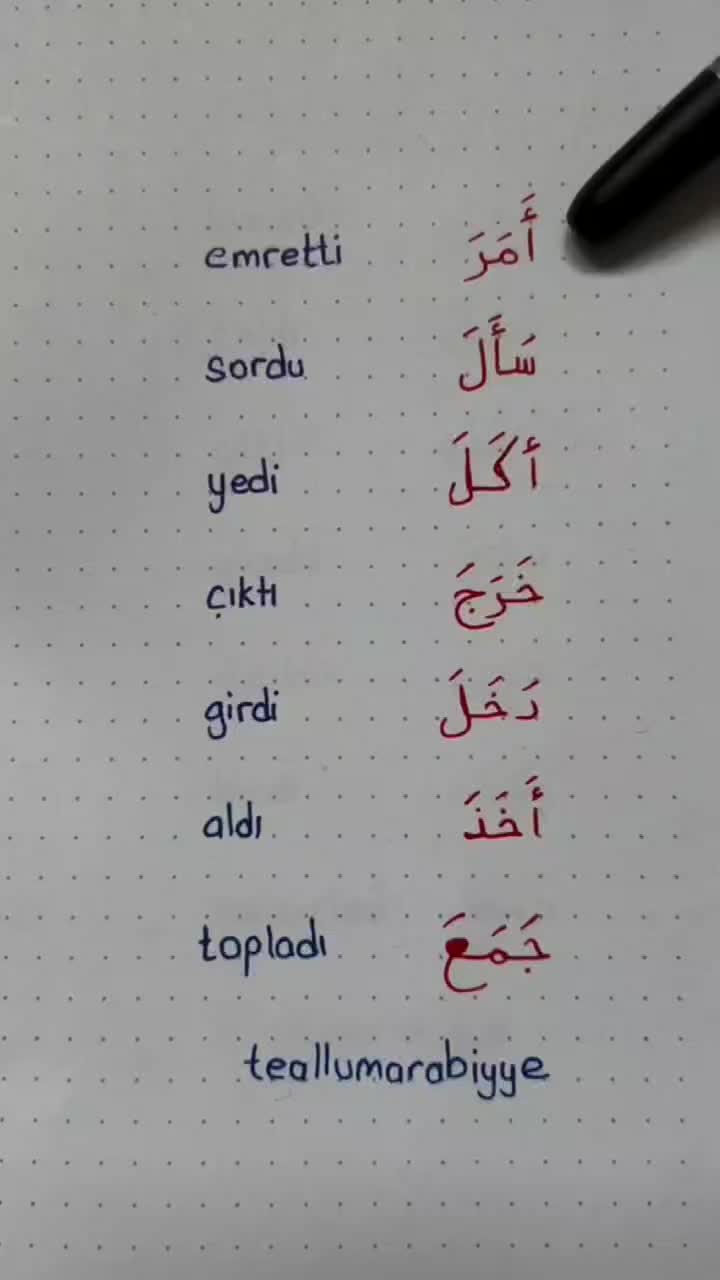 emretti أَمَرَ
sordu سَأَلَ
yedi أكَلَ
çıktı خَرَجَ
girdi دَخَلَ
aldı أَخَذَ
topladı جَمَعَ
teallumarabiyye